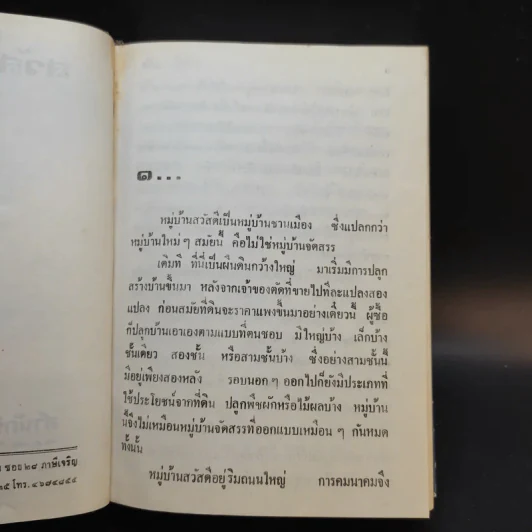 ๑...
หมู่บ้านสวัสดีเป็นหมู่บ้านชานเมือง ซึ่งแปลกกว่า
หมู่บ้านใหม่ ๆ สมัยนี้ คือไม่ใช่หมู่บ้านจัดสรร
เดิมที ที่นี่เป็นผืนดินกว้างใหญ่ มาเริ่มมีการปลูก
สร้างบ้านขึ้นมา หลังจากเจ้าของตัดที่ขายไปทีละแปลงสอง
แปลง ก่อนสมัยที่ดินจะราคาแพงขึ้นมาอย่างเดี๋ยวนี้ ผู้ซื้อ
ก็ปลูกบ้านเอาเองตามแบบที่ตนชอบ มีใหญ่บ้าง เล็กบ้าง
ชั้นเดียว สองชั้น หรือสามชั้นบ้าง ซึ่งอย่างสามชั้นนี้
มีอยู่เพียงสองหลัง รอบนอก ๆ ออกไปก็ยังมีประเภทที่
ใช้ประโยชน์จากที่ดิน ปลูกพืชผักหรือไม้ผลบ้าง หมู่บ้าน
นี้จึงไม่เหมือนหมู่บ้านจัดสรรที่ออกแบบเหมือน ๆ กันหมด
ทั้งนั้น
หมู่บ้านสวัสดีอยู่ริมถนนใหญ่ การคมนาคมจึง
ซอย ๒๘ ภาษีเจริญ
โทร. ๔๖๗๔๘๕๕